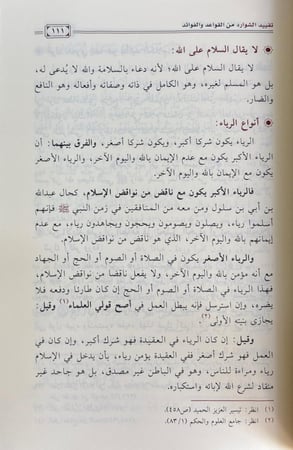 تقييد الشوارد من القواعد والفوائد
١١١
لا يقال السلام على الله:
لا يقال السلام على الله؛ لأنه دعاء بالسلامة والله لا يُدعى له،
بل هو المسلم لغيره، وهو الكامل في ذاته وصفاته وأفعاله وهو النافع
والضار.
أنواع الرياء:
الرياء يكون شركا أكبر، ويكون شركا أصغر، والفرق بينهما: أن
الرياء الأكبر يكون مع عدم الإيمان بالله واليوم الآخر، والرياء الأصغر
يكون مع الإيمان بالله واليوم الآخر.
فالرياء الأكبر يكون مع ناقض من نواقض الإسلام، كحال عبدالله
بن أبي بن سلول ومن معه من المنافقين في زمن النبي ﷺ فإنهم
أسلموا رياء، ويصلون ويصومون ويحجون ويجاهدون رياء، مع عدم
إيمانهم بالله واليوم الآخر، الذي هو ناقض من نواقض الإسلام.
والرياء الأصغر يكون في الصلاة أو الصوم أو الحج أو الجهاد
مع أنه مؤمن بالله واليوم الآخر، ولا يفعل ناقضا من نواقض الإسلام،
فهذا الرياء في الصلاة أو الصوم أو الحج إن كان طارئا ودفعه فلا
يضره، وإن استرسل فإنه يبطل العمل في أصح قولي العلماء(١) وقيل:
يجازى بنيته الأولى(٢).
وقيل: إن كان الرياء في العقيدة فهو شرك أكبر، وإن كان في
العمل فهو شرك أصغر ففي العقيدة يؤمن رياء، بأن يدخل في الإسلام
رياء ومراءة للناس، وهو في الباطن غير مصدق، بل هو جاحد غير
منقاد لشرع الله لإبائه واستكباره.
(١) انظر: تيسير العزيز الحميد (ص٤٥٨).
(٢) انظر: جامع العلوم والحكم (٨٣/١).